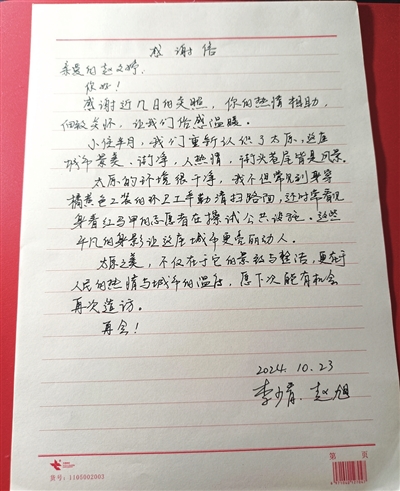 感谢信
亲爱的赵文婷:
你好!
感谢近几日的关照,你的热情相助,
细致关怀,让我们倍感温暖。
小住半月,我们重新认识了太原,这座
城市景美、街净、人热情,街头巷尾皆是风景。
太原的环境很干净,我不但常见到身穿
橘黄色工装的环卫工辛勤清扫路面,还时常看见
身着红马甲的志愿者在擦拭公共设施。这些
平凡的身影让这座城市更亮丽动人。
太原之美,不仅在于它的景致与整洁,更在于
人民的热情与城市的温度,愿下次能有机会
再次造访。
再会!
2024.10.23
李少青、赵旭
第 页
货号:1100002003